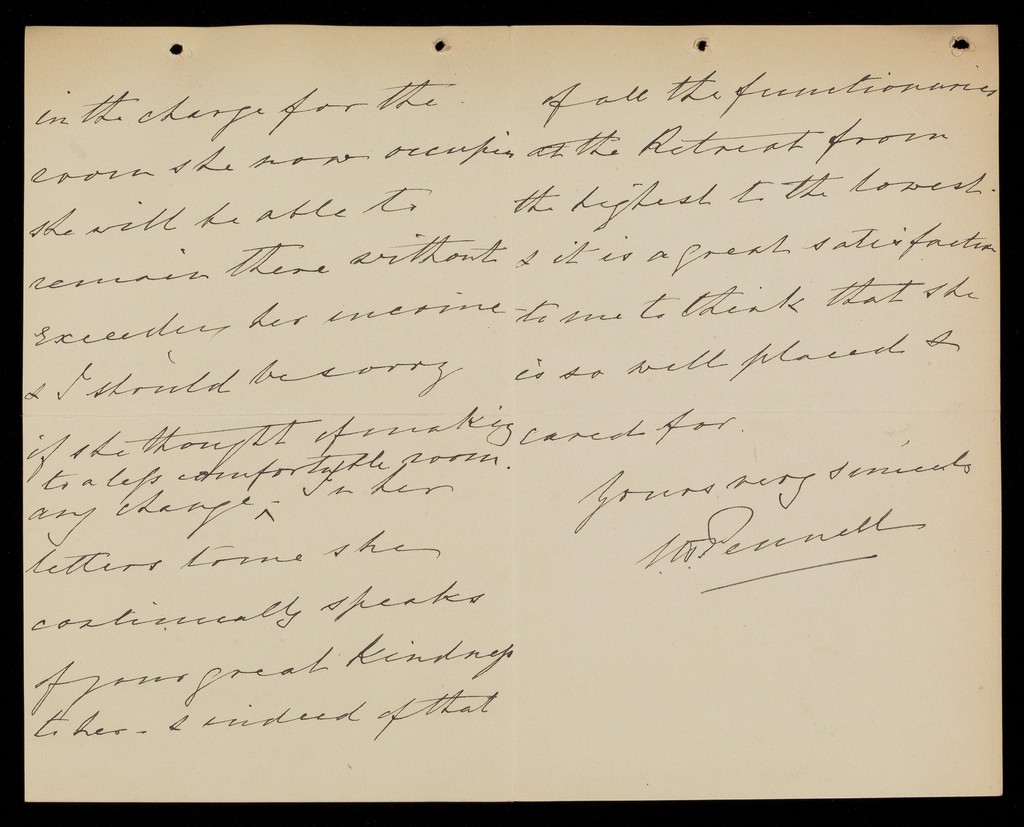 in the charge for the
room she now occupies
she will be able to
remain there without
exceeding her income
& I should be sorry
if she thought of making
to a less comfortable room.
any change - ^ In her
letters to me she
continually speaks
of your great kindness
to her - & indeed of that
of all the functionaries
at the Retreat from
the highest to the lowest -
& it is a great satisfaction
to me to think that she
is so well placed &
cared for.
Yours very sincerely
Pennell